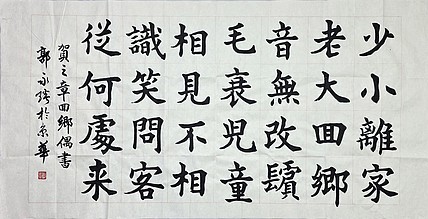 少小離家
老大回鄉
音無改鬢
毛衰兒童
相見不相
識笑問客
從何處来
賀之章回鄉偶書
郭永於京華